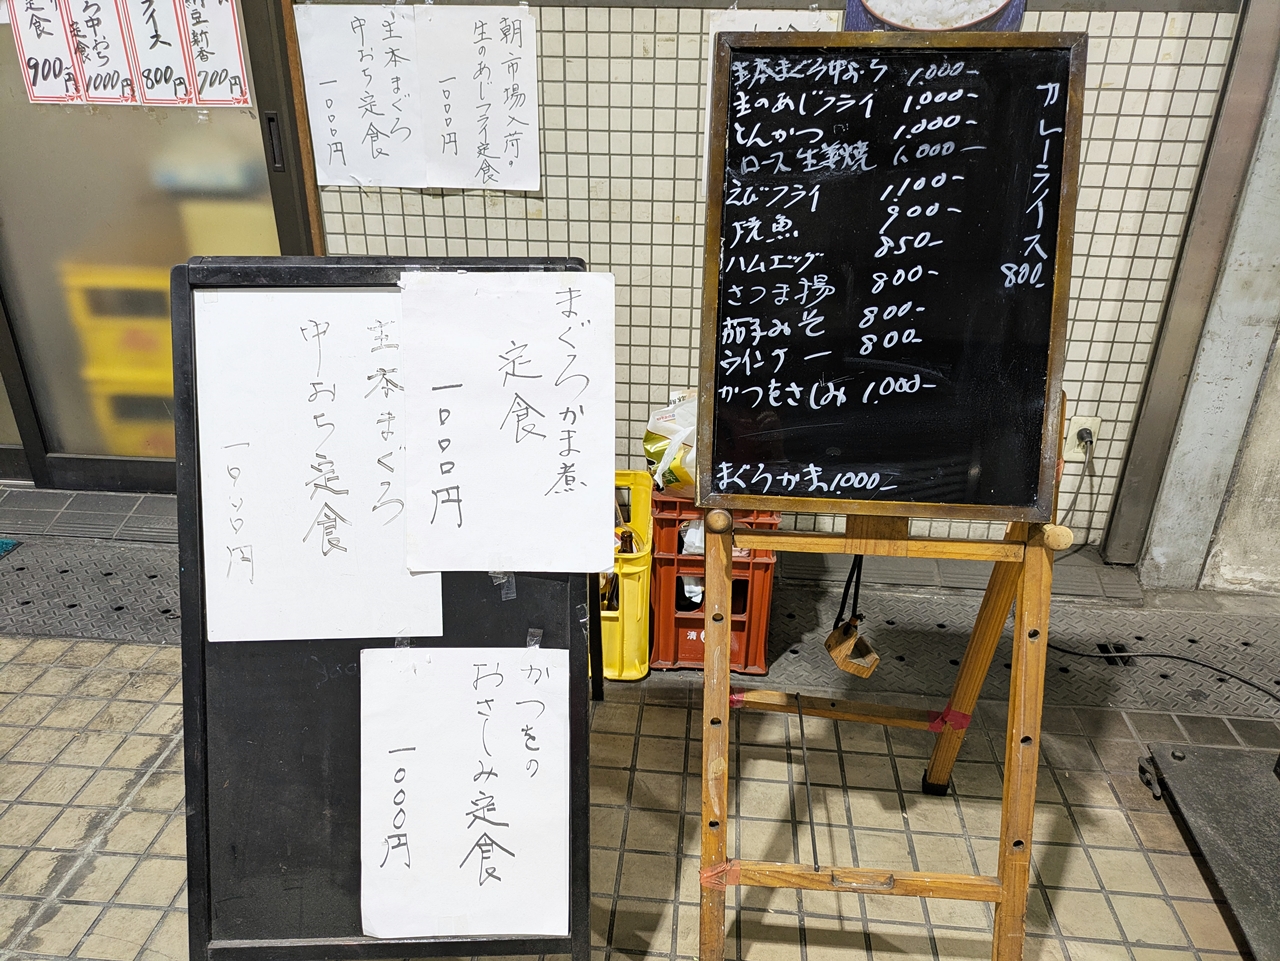 定食
900円
中おち
定食
1000円
ライス
800円
700円
朝市場入荷
生のあじフライ定食
一〇〇〇円
生本まぐろ
中おち定食
一〇〇〇円
まぐろかま煮
定食
一〇〇〇円
生本まぐろ
中おち定食
一〇〇〇円
かつをの
おさしみ定食
一〇〇〇円
生本まぐろ中おち 1.000-
生のあじフライ 1.000-
とんかつ 1.000-
ロース生姜焼 1.000-
えびフライ 1.100-
焼魚 900-
ハムエッグ 850-
さつま揚 800-
茄子みそ 800-
ウインナー 800-
かつをさしみ 1.000-
まぐろかま 1.000-
カレーライス
800-
清